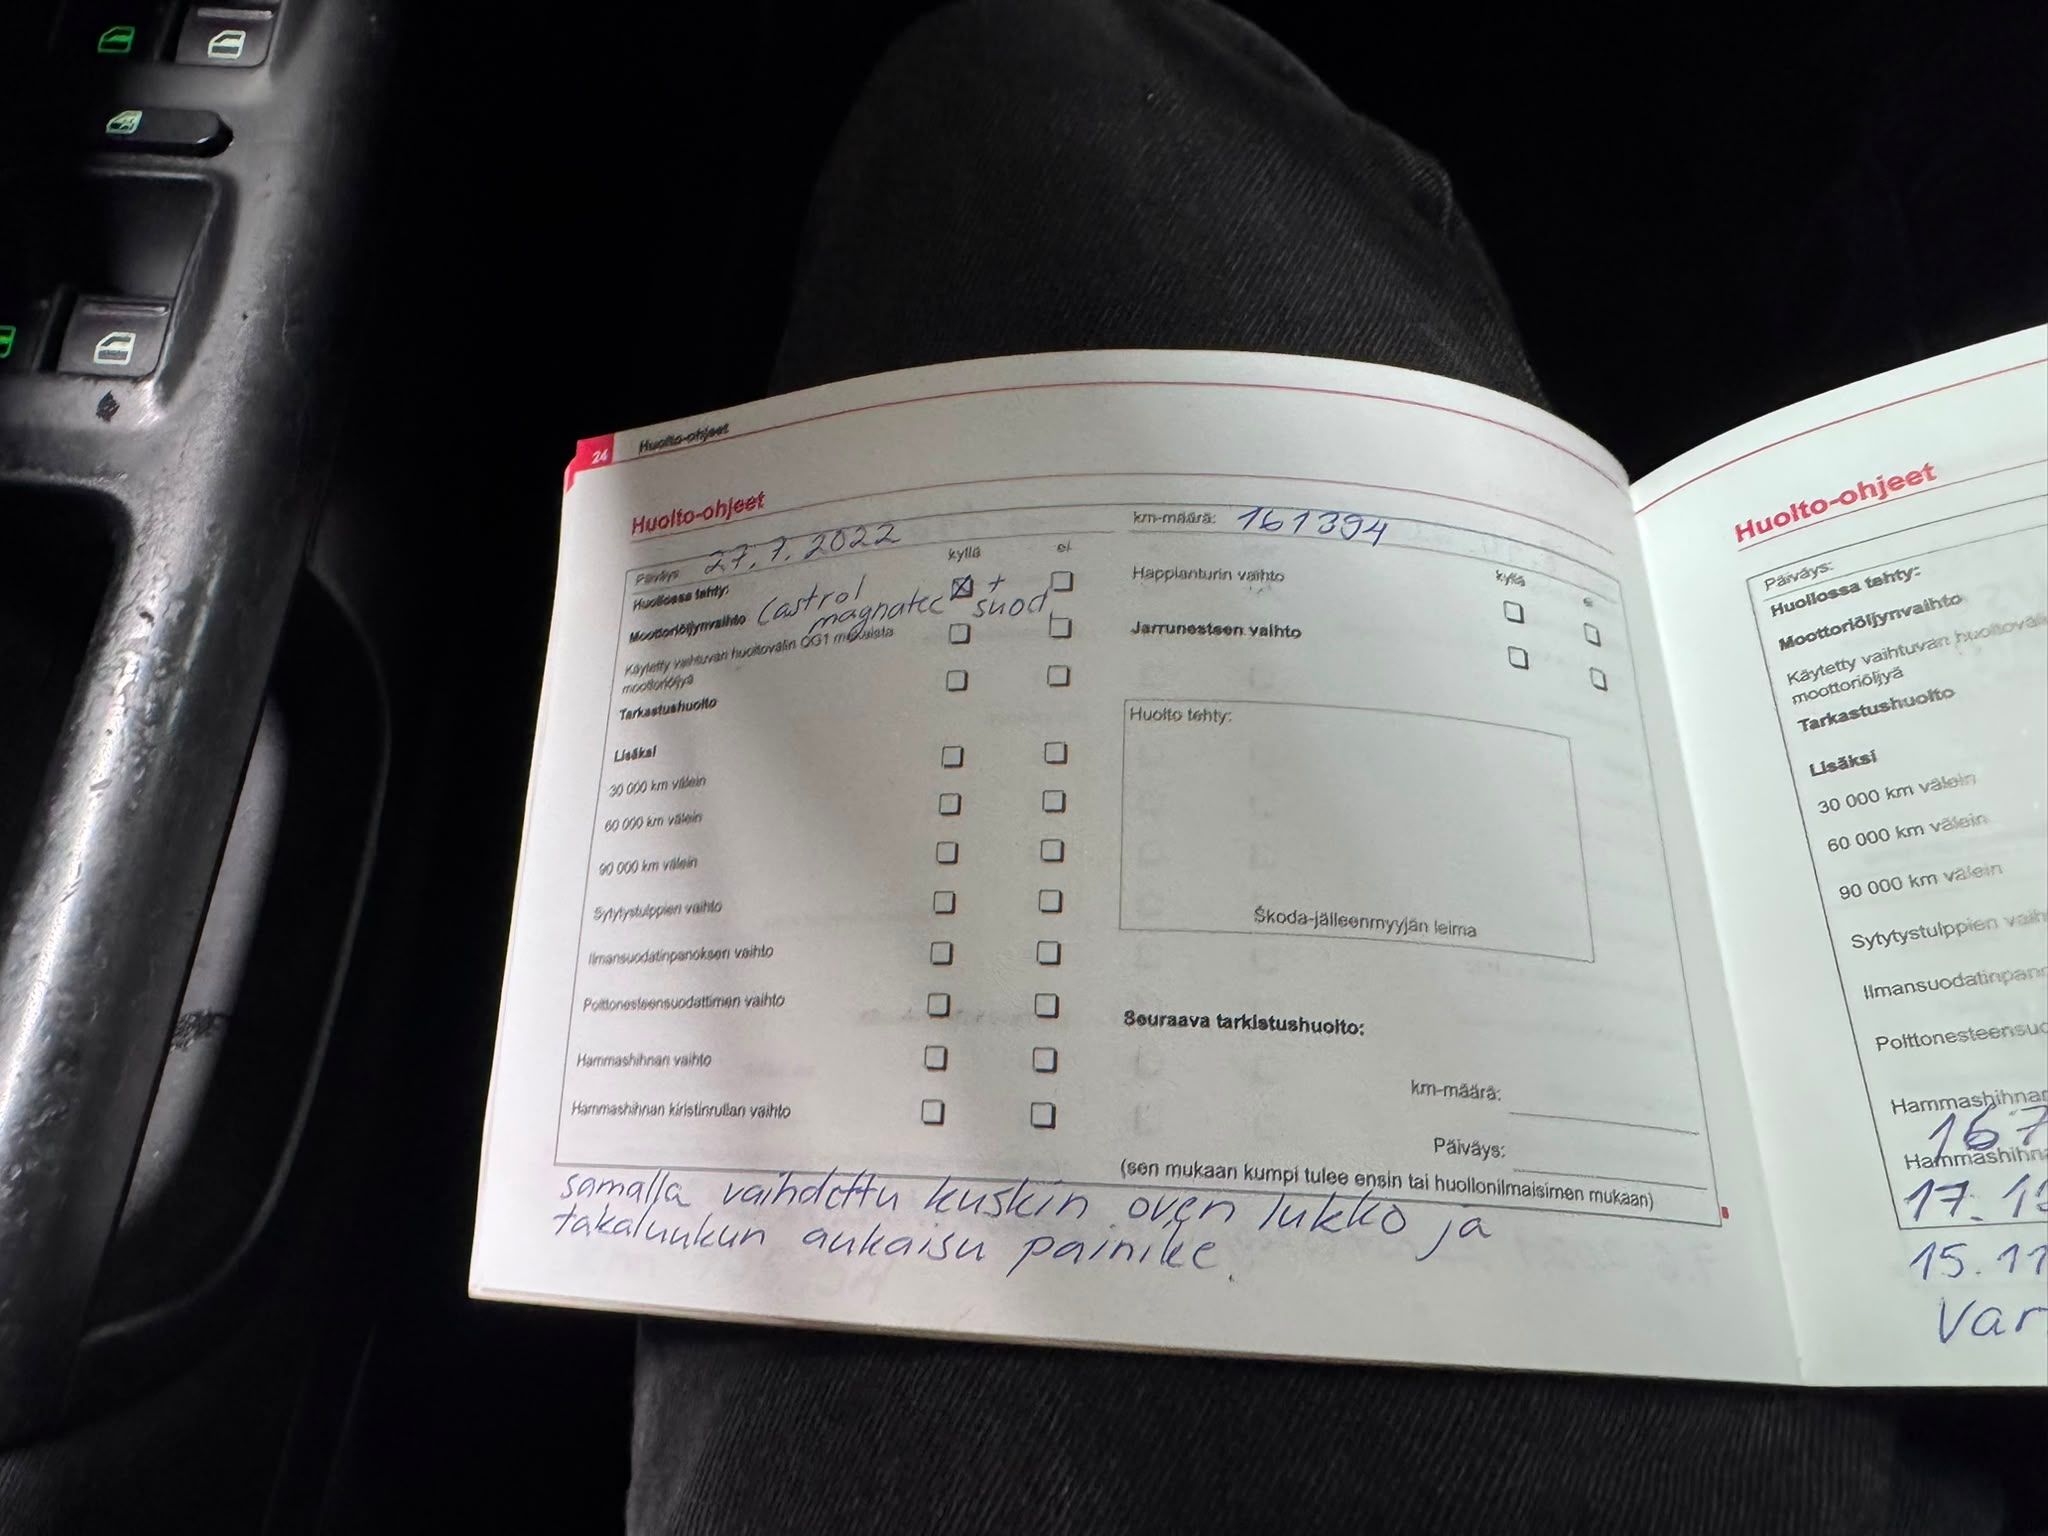 24 Huolto-ohjeet
Huolto-ohjeet
Päiväys 27.7.2022
kyllä ei
Huollossa tehty:
Moottoriöljynvaihto Castrol magnatec + suod.
Käytetty vaihtuvan huoltovälin QG1 mukaista
moottoriöljyä
Tarkastushuolto
Lisäksi
30 000 km välein
60 000 km välein
90 000 km välein
Sytytystulppien vaihto
Ilmansuodatinpanoksen vaihto
Polttonesteensuodattimen vaihto
Hammashihnan vaihto
Hammashihnan kiristinrullan vaihto
km-määrä: 161394
kyllä ei
Happianturin vaihto
Jarrunesteen vaihto
Huolto tehty:
Škoda-jälleenmyyjän leima
Seuraava tarkistushuolto:
km-määrä:
Päiväys:
(sen mukaan kumpi tulee ensin tai huollonilmaisimen mukaan)
samalla vaihdettu kuskin oven lukko ja
takaluukun aukaisu painike.
Huolto-ohjeet
Päiväys:
Huollossa tehty:
Moottoriöljynvaihto
Käytetty vaihtuvan
moottoriöljyä
Tarkastushuolto
Lisäksi
30 000 km välein
60 000 km välein
90 000 km välein
Sytytystulppien